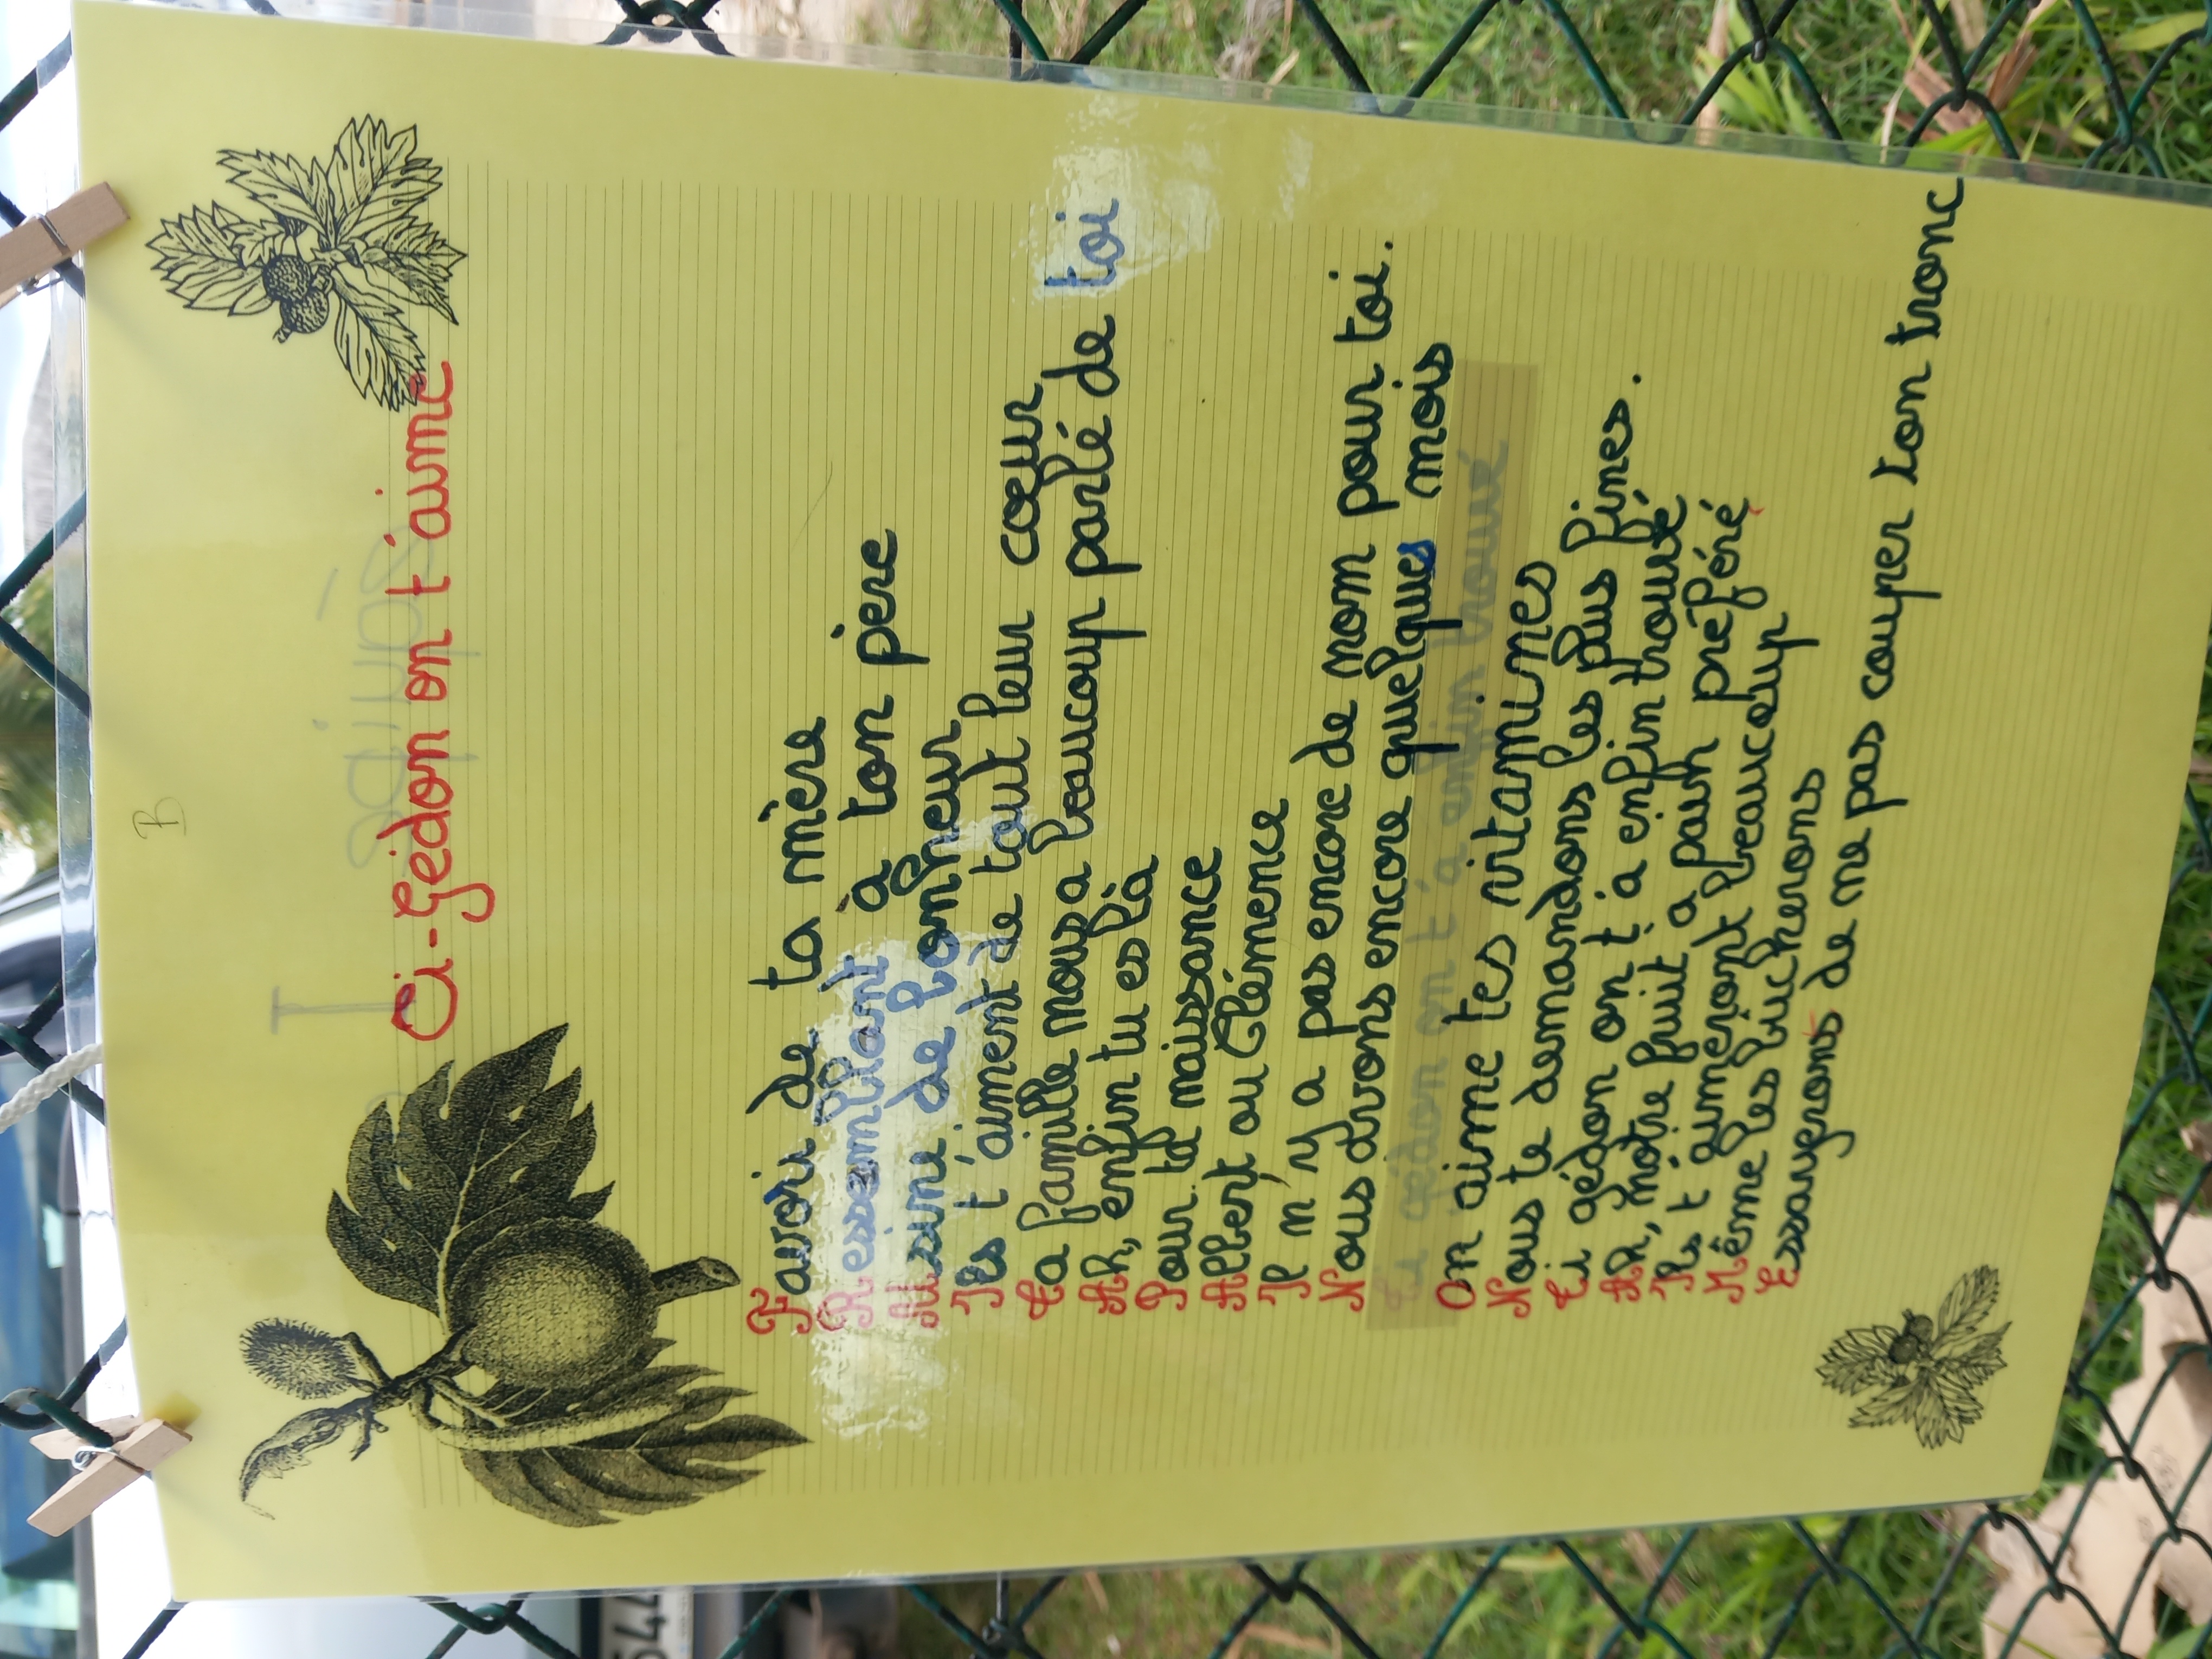 B
Ti-Gédon on t'aime
Favori de ta mère
Ressemblant à ton père
Usine de bonheur
Ils t'aiment de tout leur cœur
Ta famille nous a beaucoup parlé de toi
Ah, enfin tu es là
Pour ta naissance
Albert ou Clémence
Il n'y a pas encore de nom pour toi.
Nous avons encore quelques mois
Ti gédon on t'a enfin trouvé
On aime tes vitamines
Nous te demandons les plus fines.
Ti gédon on t'a enfin trouvé
Ah, notre fruit a pain préféré
Ils t'aimeront beaucoup
Même les bûcherons
Essayerons de ne pas couper ton tronc